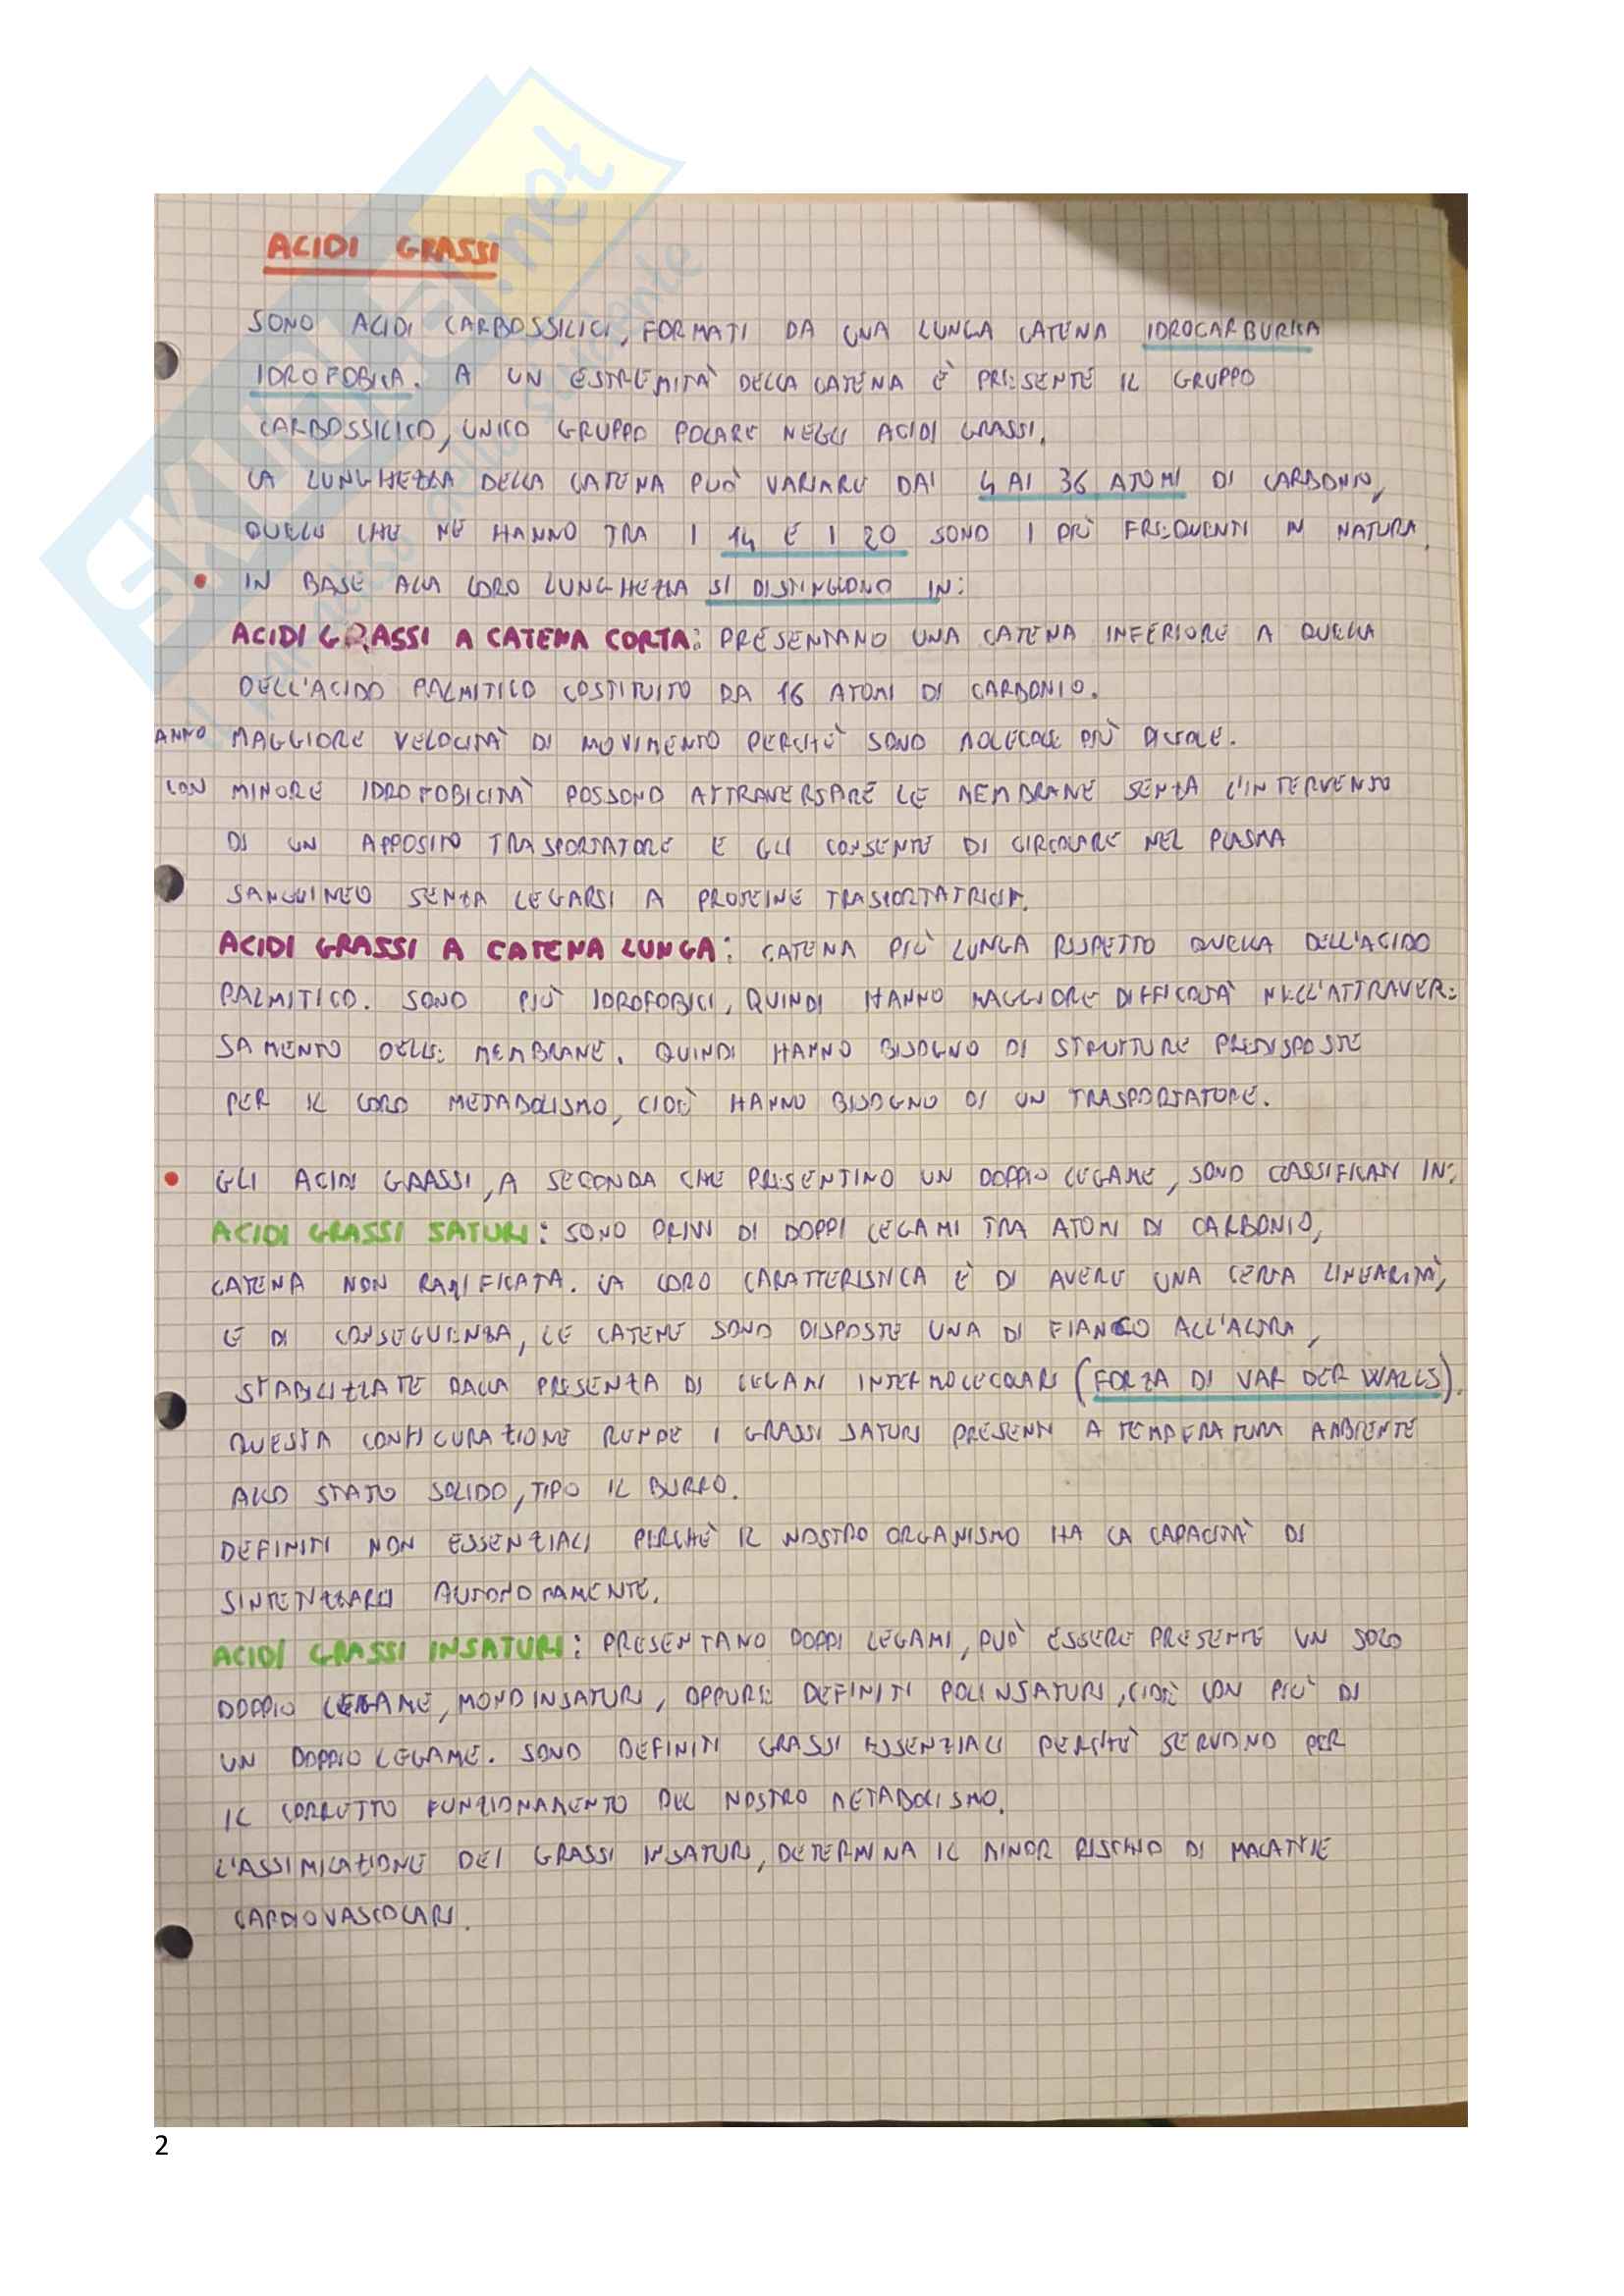 ACIDI GRASSI
SONO ACIDI CARBOSSILICI, FORMATI DA UNA LUNGA CATENA IDROCARBURICA
IDROFOBICA. A UN ESTREMITÀ DELLA CATENA È PRESENTE IL GRUPPO
CARBOSSILICO, UNICO GRUPPO POLARE NEGLI ACIDI GRASSI.
LA LUNGHEZZA DELLA CATENA PUÒ VARIARE DAI 4 AI 36 ATOMI DI CARBONIO,
QUELLI CHE NE HANNO TRA I 14 E I 20 SONO I PIÙ FREQUENTI IN NATURA.
• IN BASE ALLA LORO LUNGHEZZA SI DISTINGUONO IN:
ACIDI GRASSI A CATENA CORTA: PRESENTANO UNA CATENA INFERIORE A QUELLA
DELL'ACIDO PALMITICO COSTITUITO DA 16 ATOMI DI CARBONIO.
ANNO MAGGIORE VELOCITÀ DI MOVIMENTO PERCHÈ SONO MOLECOLE PIÙ PICCOLE.
CON MINORE IDROFOBICITÀ POSSONO ATTRAVERSARE LE MEMBRANE SENZA L'INTERVENTO
DI UN APPOSITO TRASPORTATORE E GLI CONSENTE DI CIRCOLARE NEL PLASMA
SANGUINEO SENZA LEGARSI A PROTEINE
ACIDI GRASSI A CATENA LUNGA: CATENA PIÙ LUNGA RISPETTO QUELLA DELL'ACIDO
PALMITICO. SONO PIÙ IDROFOBICI, QUINDI HANNO MAGGIORE DIFFICOLTÀ NELL'ATTRAVER-
SAMENTO DELLE MEMBRANE. QUINDI HANNO BISOGNO DI STRUTTURE PREDISPOSTE
PER IL LORO METABOLISMO, CIOÈ HANNO BISOGNO DI UN TRASPORTATORE.
• GLI ACIDI GRASSI, A SECONDA CHE PRESENTINO UN DOPPIO LEGAME, SONO CLASSIFICATI IN:
ACIDI GRASSI SATURI: SONO PRIVI DI DOPPI LEGAMI TRA ATOMI DI CARBONIO,
CATENA NON RAMIFICATA. LA LORO CARATTERISTICA È DI AVERE UNA CERTA LINEARITÀ,
E DI CONSEGUENZA, LE CATENE SONO DISPOSTE UNA DI FIANCO ALL'ALTRA,
STABILIZZATE DALLA PRESENZA DI LEGAMI INTERMOLECOLARI (FORZA DI VAR DER WALLS).
QUESTA CONFIGURAZIONE RENDE I GRASSI SATURI PRESENTI A TEMPERATURA AMBIENTE
ALLO STATO SOLIDO, TIPO IL BURRO.
DEFINITI NON ESSENZIALI PERCHÈ IL NOSTRO ORGANISMO HA LA CAPACITÀ DI
SINTETIZZARLI AUTONOMAMENTE.
ACIDI GRASSI INSATURI: PRESENTANO DOPPI LEGAMI, PUÒ ESSERE PRESENTE UN SOLO
DOPPIO LEGAME, MONOINSATURI, OPPURE DEFINITI POLINSATURI, CIOÈ CON PIÙ DI
UN DOPPIO LEGAME. SONO DEFINITI GRASSI ESSENZIALI PERCHÈ SERVONO PER
IL CORRETTO FUNZIONAMENTO DEL NOSTRO METABOLISMO.
L'ASSIMILAZIONE DEI GRASSI INSATURI, DETERMINA IL MINOR RISCHIO DI MALATTIE
CARDIOVASCOLARI.
2
SKUOLA.net